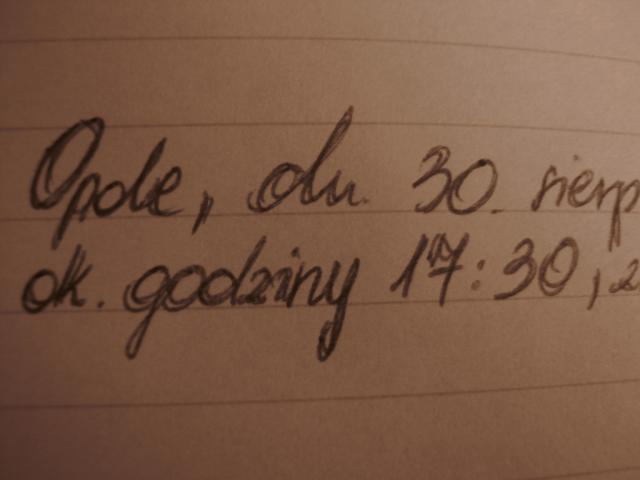 Opole, dn. 30. sierp
ok. godziny 17:30, z